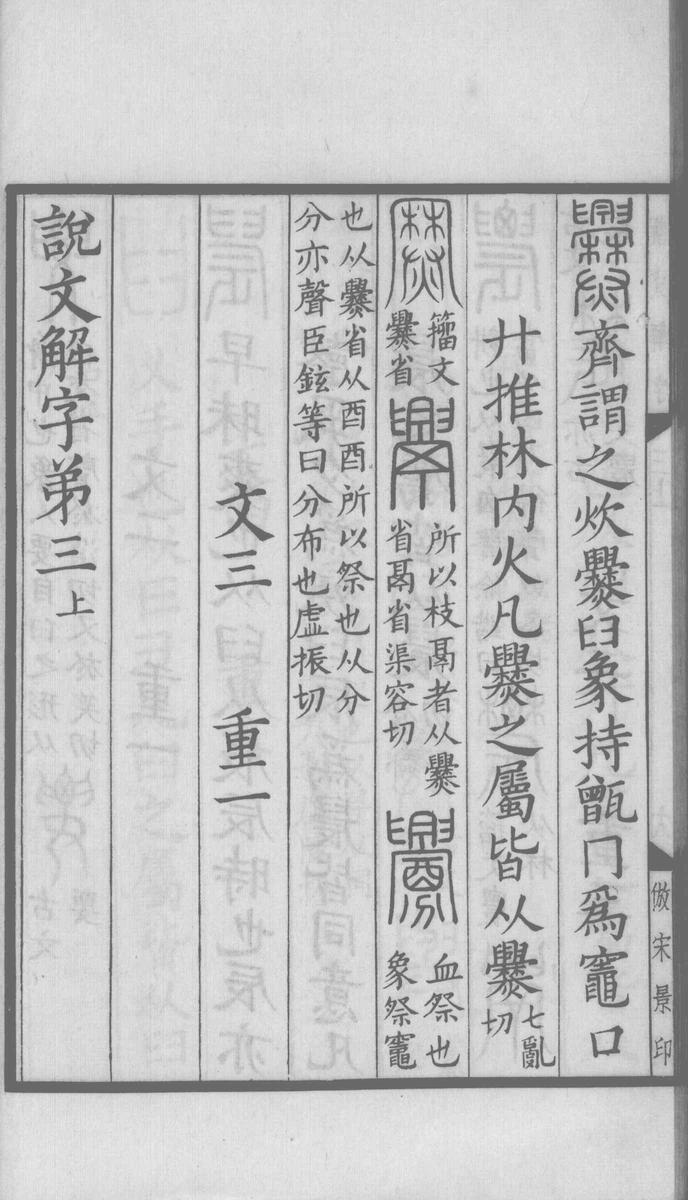 爨齊謂之炊爨𦥑象持甑冂爲竈口
廾推林内火凡爨之屬皆从爨七亂切
籀文爨省 所以枝鬲者从爨省鬲省渠容切 釁血祭也象祭竈
也从爨省从酉酉所以祭也从分分亦聲臣鉉等曰分布也虛振切
文三 重一
說文解字弟三上
倣宋景印